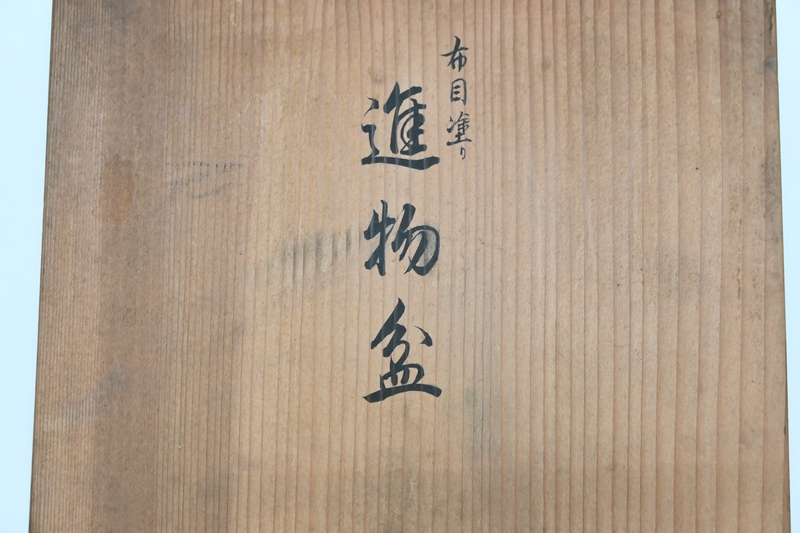 布目塗り
進物盆